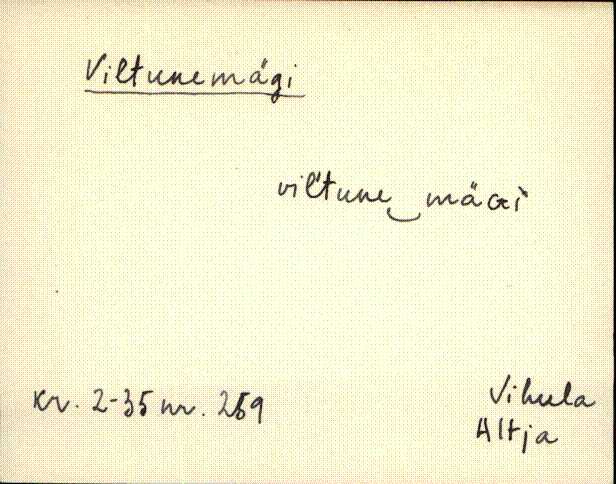 Viltunemägi
vil̆tune‿mäGì
kr. 2-35 nr. 259
Vihula
Altja